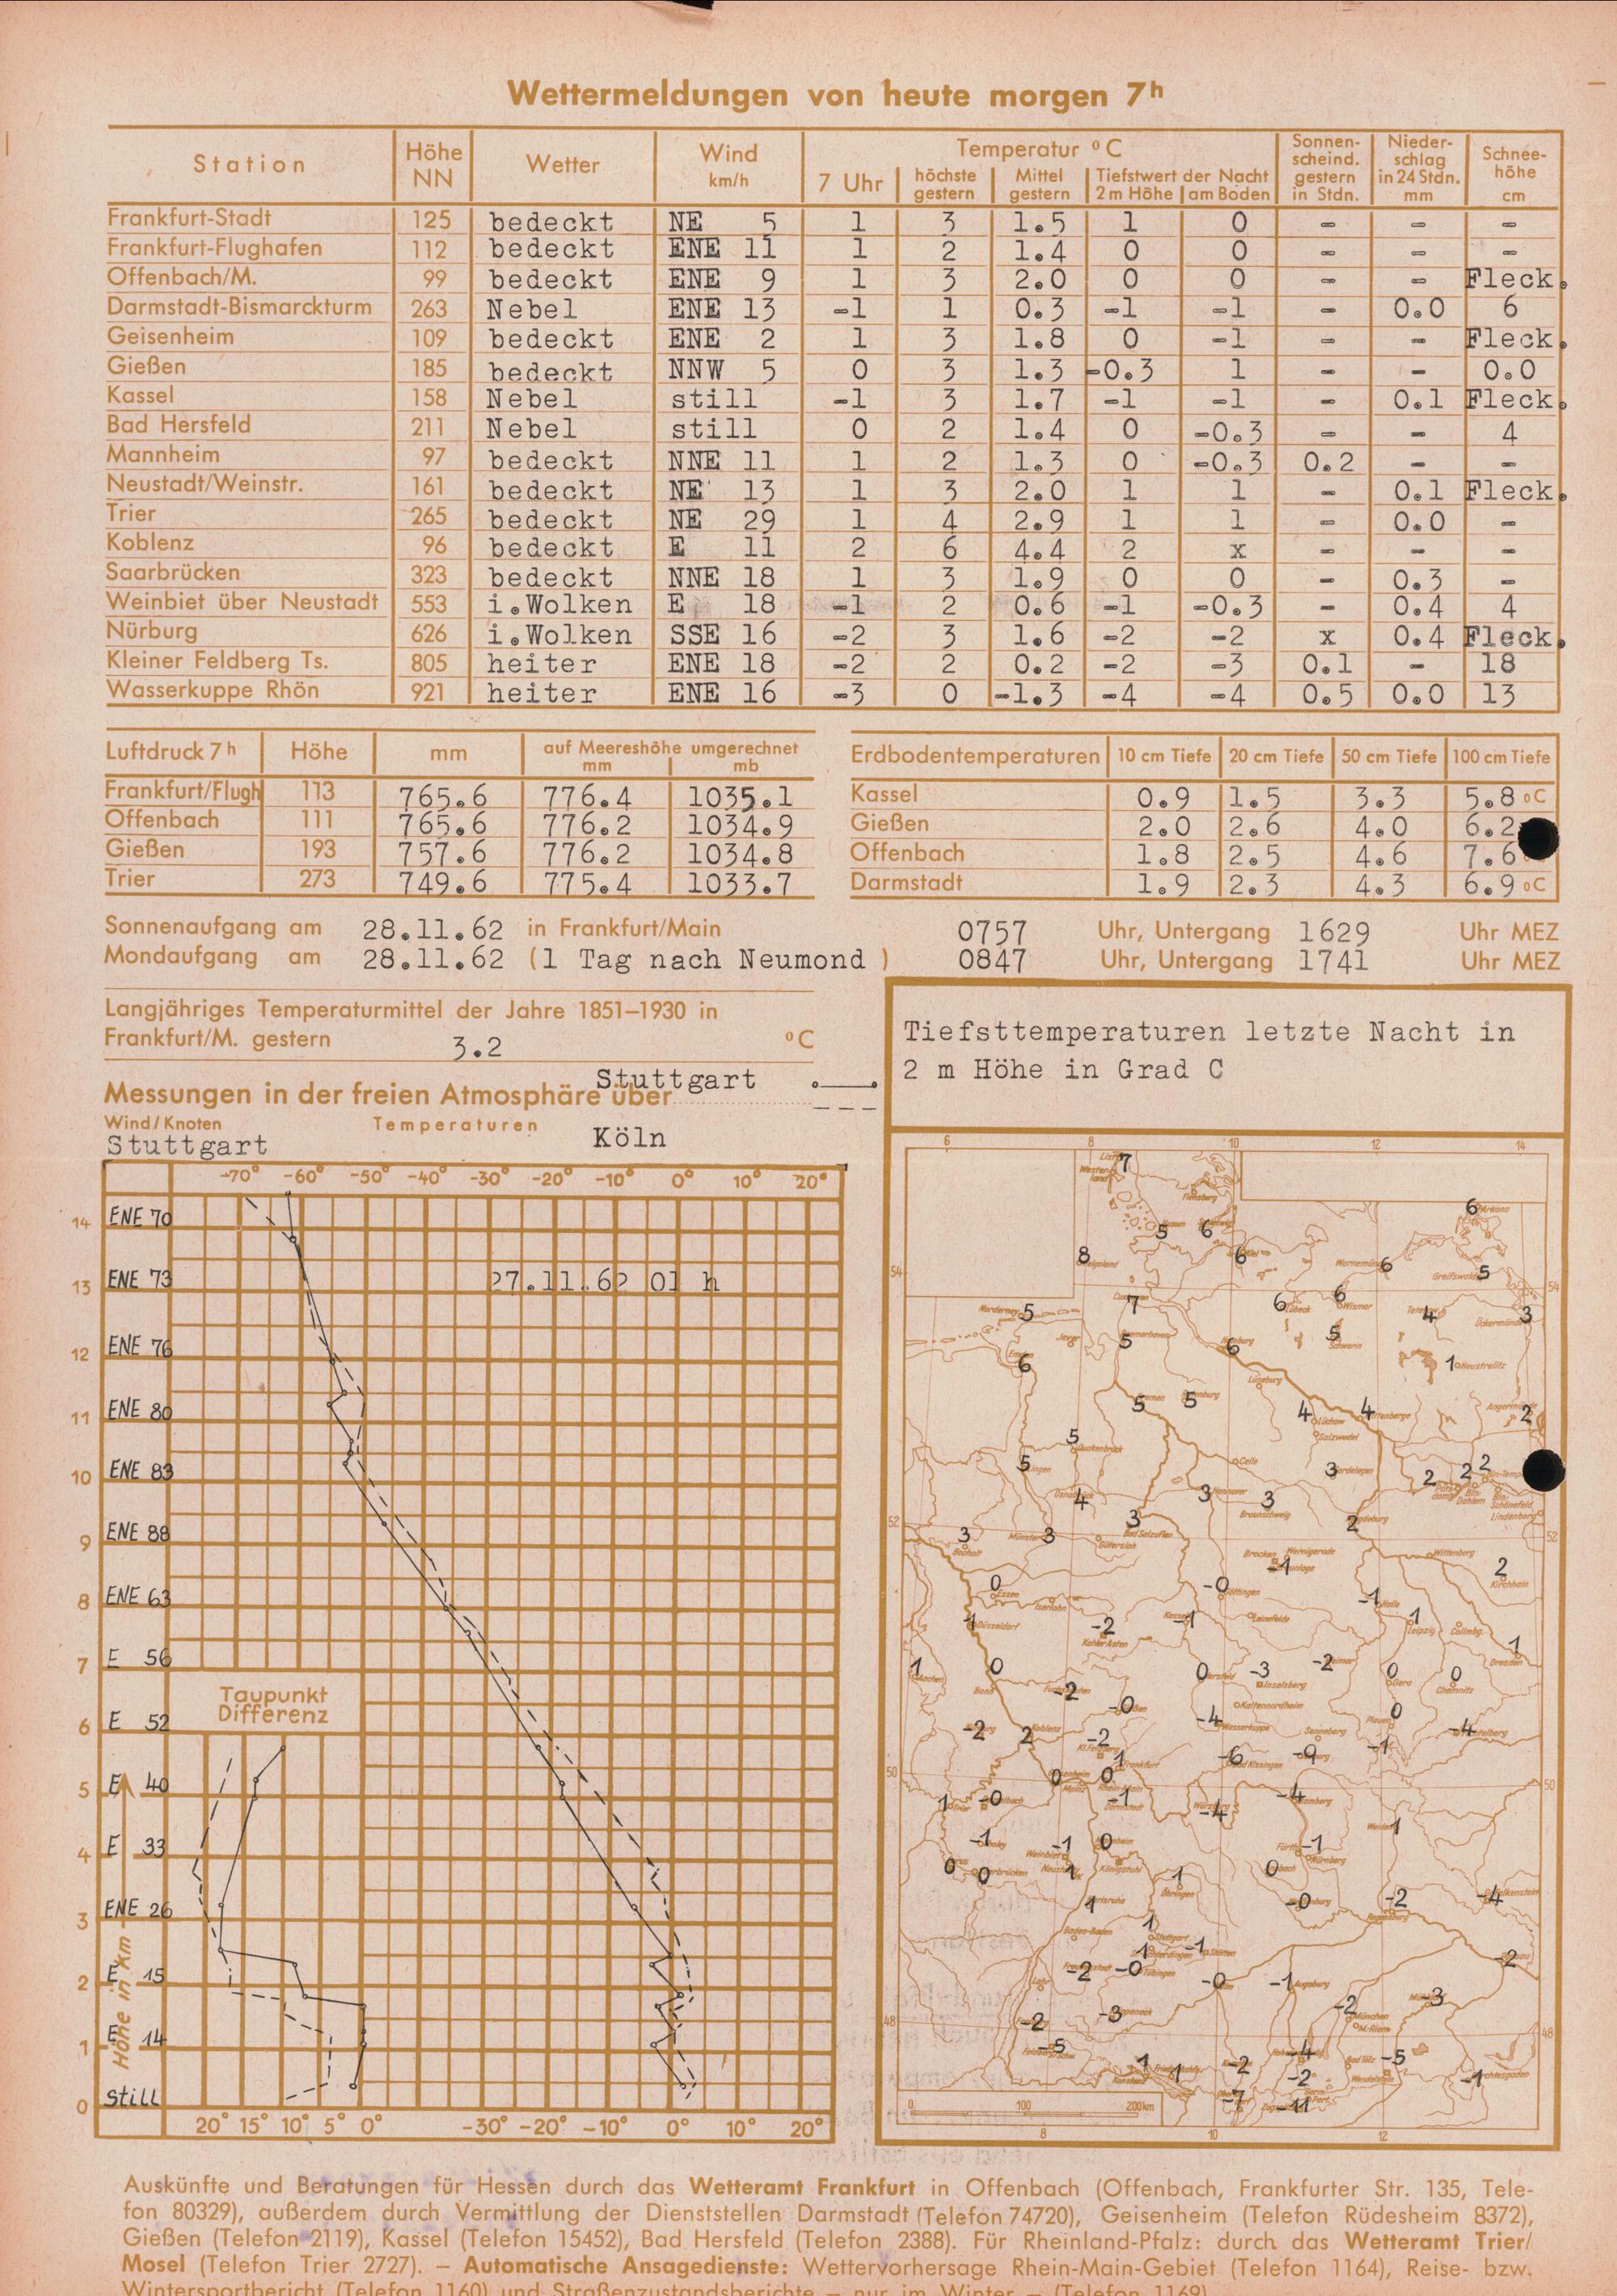 Wettermeldungen von heute morgen 7h
Station Höhe NN Wetter Wind km/h Temperatur °C Sonnenscheind. gestern in Stdn. Niederschlag in 24 Stdn. mm Schneehöhe cm
7 Uhr höchste gestern Mittel gestern Tiefstwert der Nacht 2 m Höhe am Boden
Frankfurt-Stadt 125 bedeckt NE 5 1 3 1.5 1 0 - - -
Frankfurt-Flughafen 112 bedeckt ENE 11 1 2 1.4 0 0 - - -
Offenbach/M. 99 bedeckt ENE 9 1 3 2.0 0 0 - - Fleck.
Darmstadt-Bismarckturm 263 Nebel ENE 13 -1 1 0.3 -1 -1 - 0.0 6
Geisenheim 109 bedeckt ENE 2 1 3 1.8 0 -1 - - Fleck.
Gießen 185 bedeckt NNW 5 0 3 1.3 -0.3 1 - - 0.0
Kassel 158 Nebel still -1 3 1.7 -1 -1 - 0.1 Fleck.
Bad Hersfeld 211 Nebel still 0 2 1.4 0 -0.3 - - 4
Mannheim 97 bedeckt NNE 11 1 2 1.3 0 -0.3 0.2 - -
Neustadt/Weinstr. 161 bedeckt NE 13 1 3 2.0 1 1 - 0.1 Fleck.
Trier 265 bedeckt NE 29 1 4 2.9 1 1 - 0.0 -
Koblenz 96 bedeckt E 11 2 6 4.4 2 x - - -
Saarbrücken 323 bedeckt NNE 18 1 3 1.9 0 0 - 0.3 -
Weinbiet über Neustadt 553 i.Wolken E 18 -1 2 0.6 -1 -0.3 - 0.4 4
Nürburg 626 i.Wolken SSE 16 -2 3 1.6 -2 -2 x 0.4 Fleck.
Kleiner Feldberg Ts. 805 heiter ENE 18 -2 2 0.2 -2 -3 0.1 - 18
Wasserkuppe Rhön 921 heiter ENE 16 -3 0 -1.3 -4 -4 0.5 0.0 13
Luftdruck 7h Höhe mm auf Meereshöhe umgerechnet mm mb
Frankfurt/Flugh 113 765.6 776.4 1035.1
Offenbach 111 765.6 776.2 1034.9
Gießen 193 757.6 776.2 1034.8
Trier 273 749.6 775.4 1033.7
Erdbodentemperaturen 10 cm Tiefe 20 cm Tiefe 50 cm Tiefe 100 cm Tiefe
Kassel 0.9 1.5 3.3 5.8 °C
Gießen 2.0 2.6 4.0 6.2
Offenbach 1.8 2.5 4.6 7.6
Darmstadt 1.9 2.3 4.3 6.9 °C
Sonnenaufgang am 28.11.62 in Frankfurt/Main 0757 Uhr, Untergang 1629 Uhr MEZ
Mondaufgang am 28.11.62 (1 Tag nach Neumond ) 0847 Uhr, Untergang 1741 Uhr MEZ
Langjähriges Temperaturmittel der Jahre 1851–1930 in
Frankfurt/M. gestern 3.2 °C
Messungen in der freien Atmosphäre über Stuttgart
Wind/Knoten Temperaturen Köln
Stuttgart
-70° -60° -50° -40° -30° -20° -10° 0° 10° 20°
14 ENE 70
13 ENE 73 27.11.62 01 h
12 ENE 76
11 ENE 80
10 ENE 83
9 ENE 88
8 ENE 63
7 E 56
Taupunkt
Differenz
6 E 52
5 E 40
4 E 33
3 ENE 26
2 E 15
1 E 14
0 Still
Höhe in km
20° 15° 10° 5° 0° -30° -20° -10° 0° 10° 20°
Tiefsttemperaturen letzte Nacht in
2 m Höhe in Grad C
6 8 10 12 14
7
6
5 6
8 6 6 5
54 54
7 6 6 4 3
5 5 5 6
6 1
5 5 4 4 2
5
5 3 2 2 2
4 3 3
52 3 3 3 2 52
-1 2
0 -0 -1
1 -2 -1 1 1
1 0 0 -3 -2 0 0
-2 -0 -4 0
-2 2 -2 -4
1 -6 -9 -1
50 0 0 50
1 -0 -1 -4 -4
-1 -1 0 -1 1
0 0 1 1 0
1 -0 -2 -4
1
1 -1 -2
-2 -0 -0 -1
48 -2 -3 -2 -3 48
-5 1 1 -2 -4 -5
-2 -1
-7 -11
0 100 200km
8 10 12
Auskünfte und Beratungen für Hessen durch das Wetteramt Frankfurt in Offenbach (Offenbach, Frankfurter Str. 135, Tele-
fon 80329), außerdem durch Vermittlung der Dienststellen Darmstadt (Telefon 74720), Geisenheim (Telefon Rüdesheim 8372),
Gießen (Telefon 2119), Kassel (Telefon 15452), Bad Hersfeld (Telefon 2388). Für Rheinland-Pfalz: durch das Wetteramt Trier/
Mosel (Telefon Trier 2727). – Automatische Ansagedienste: Wettervorhersage Rhein-Main-Gebiet (Telefon 1164), Reise- bzw.
Wintersportbericht (Telefon 1160) und Straßenzustandsberichte – nur im Winter – (Telefon 1169).